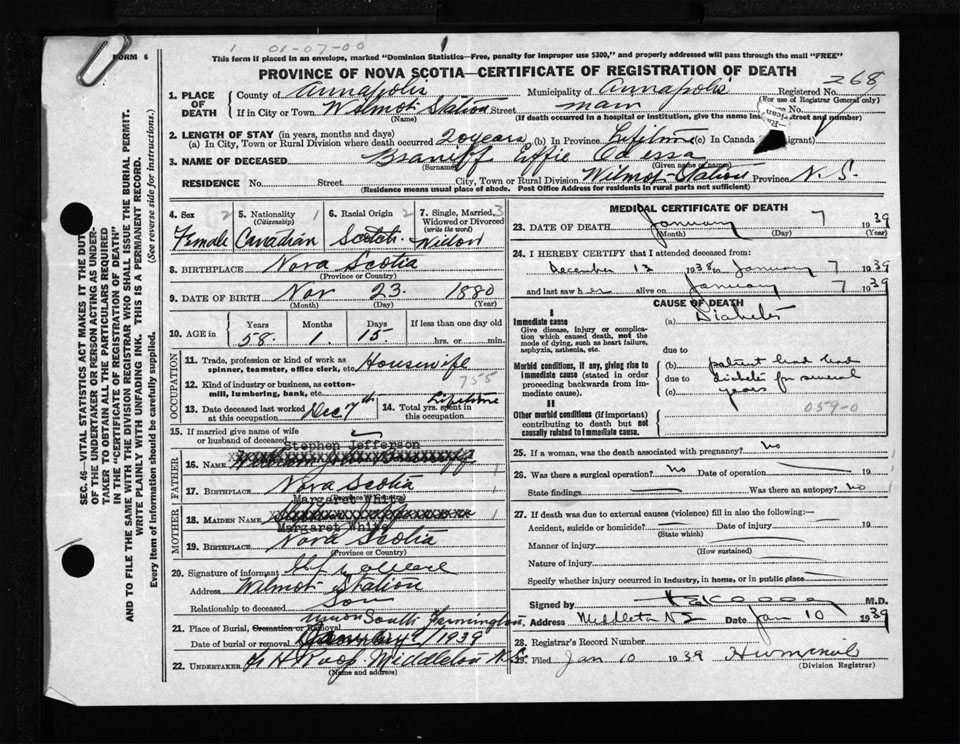 1 01-07-00 1
FORM 6
This form if placed in an envelope, marked "Dominion Statistics—Free, penalty for improper use $300," and properly addressed will pass through the mail "FREE"
PROVINCE OF NOVA SCOTIA—CERTIFICATE OF REGISTRATION OF DEATH
268
1. PLACE OF DEATH
County of Annapolis Municipality of Annapolis Registered No.
(For use of Registrar General only)
If in City or Town Wilmot Station Street main
(Name) (If death occurred in a hospital or institution, give the name instead of street and number)
2. LENGTH OF STAY (in years, months and days)
(a) In City, Town or Rural Division where death occurred 20 years (b) In Province Lifetime (c) In Canada
3. NAME OF DECEASED Effie
(Surname) (Given name or names)
RESIDENCE No. Street City, Town or Rural Division Wilmot Station Province N. S.
(Residence means usual place of abode. Post Office Address for residents in rural parts not sufficient)
SEC. 46—VITAL STATISTICS ACT MAKES IT THE DUTY
OF THE UNDERTAKER OR PERSON ACTING AS UNDER-
TAKER TO OBTAIN ALL THE PARTICULARS REQUIRED
IN THE "CERTIFICATE OF REGISTRATION OF DEATH"
AND TO FILE THE SAME WITH THE DIVISION REGISTRAR WHO SHALL ISSUE THE BURIAL PERMIT.
WRITE PLAINLY WITH UNFADING INK. THIS IS A PERMANENT RECORD.
Every item of information should be carefully supplied. (See reverse side for instructions.)
4. Sex 2 5. Nationality 1 6. Racial Origin 2 7. Single, Married, 3
(Citizenship) Widowed or Divorced
(write the word)
Female Canadian Scotch Widow
8. BIRTHPLACE Nova Scotia
(Province or Country)
9. DATE OF BIRTH Nov 23 1880
(Month) (Day) (Year)
10. AGE in Years Months Days If less than one day old
58 1 15 hrs. or min.
OCCUPATION
11. Trade, profession or kind of work as
spinner, teamster, office clerk, etc. Housewife
755
12. Kind of industry or business, as cotton-
mill, lumbering, bank, etc.
13. Date deceased last worked
at this occupation Dec 7th
14. Total yrs. spent in
this occupation Lifetime
15. If married give name of wife
or husband of deceased
Stephen Jefferson
FATHER
16. NAME
17. BIRTHPLACE Nova Scotia
Margaret White
MOTHER
18. MAIDEN NAME
Margaret White
19. BIRTHPLACE Nova Scotia
(Province or Country)
20. Signature of informant
Address Wilmot Station
Relationship to deceased Son
21. Place of Burial, Cremation or Removal South Farmington
Date of burial or removal 1939
22. UNDERTAKER Middleton N.S.
(Name and address)
MEDICAL CERTIFICATE OF DEATH
23. DATE OF DEATH January 7 1939
(Month) (Day) (Year)
24. I HEREBY CERTIFY that I attended deceased from
December 12 1938 to January 7 1939
and last saw her alive on January 7 1939
CAUSE OF DEATH
I
Immediate cause (a) Diabetes
Give disease, injury or complica-
tion which caused death, not the
mode of dying, such as heart failure,
asphyxia, asthenia, etc. due to
Morbid conditions, if any, giving rise to
immediate cause (stated in order
proceeding backwards from im-
mediate cause).
(b) patient had had
due to diabetes for several
(c) years
II
Other morbid conditions (if important)
contributing to death but not
causally related to immediate cause.
059-0
25. If a woman, was the death associated with pregnancy? No
26. Was there a surgical operation? No Date of operation 19
State findings Was there an autopsy? No
27. If death was due to external causes (violence) fill in also the following:—
Accident, suicide or homicide? Date of injury 19
(State which)
Manner of injury
(How sustained)
Nature of injury
Specify whether injury occurred in industry, in home, or in public place
Signed by M.D.
Address Middleton N S Date Jan 10 1939
28. Registrar's Record Number
29. Filed Jan 10 1939
(Division Registrar)